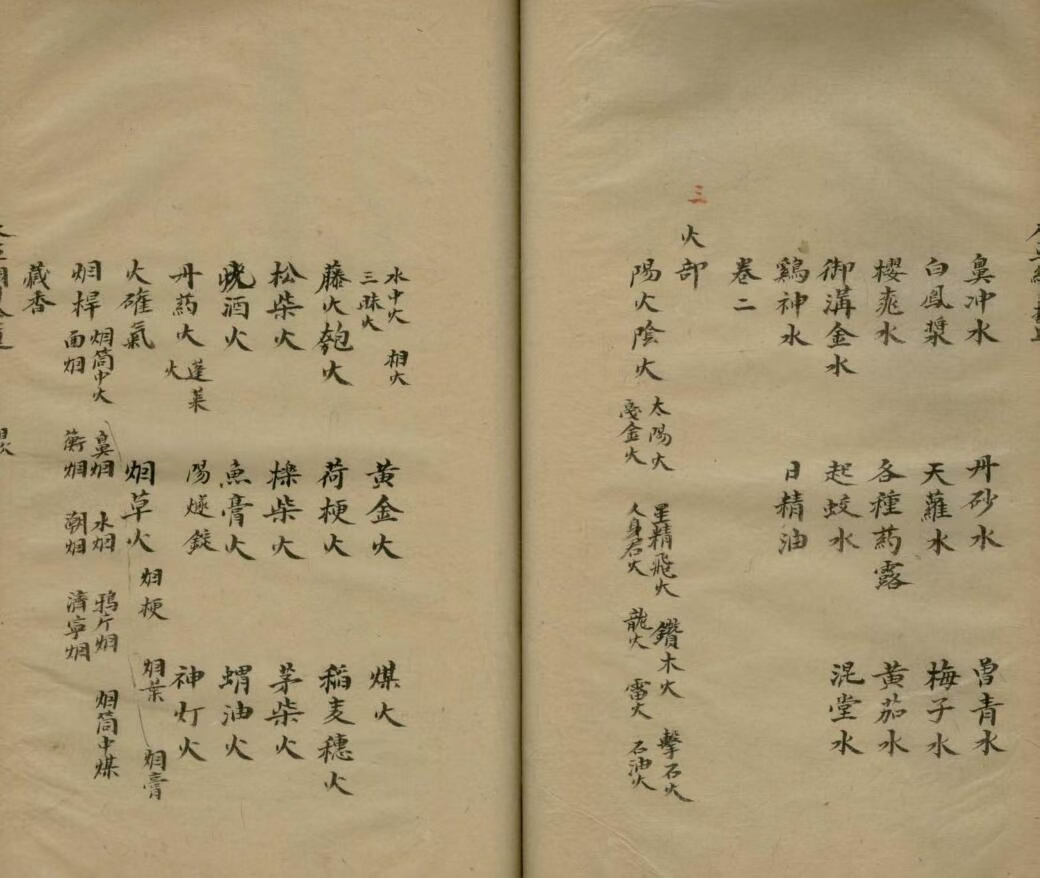 鼻冲水 丹砂水 曽青水
白鳳漿 天蘿水 梅子水
櫻乖水 各種葯露 黄茄水
御溝金水 起蛟水 混堂水
鷄神水 日精油
卷二
三 火部
陽火陰火 太陽火 星精飛火 鑽木火 擊石火
戞金火 人身君火 龍火 雷火 石油火
水中火 相火
三昧火
黄金火 煤火
藤火匏火 荷梗火 稲麦穗火
松柴火 櫟柴火 茅柴火
燒酒火 魚膏火 蝟油火
丹葯火 蓬莱火 陽燧錠 神灯火
火確氣 烟草火 烟梗 烟葉 烟膏
烟桿 烟筒中火 鼻烟 水烟 鴉片烟 烟筒中煤
面烟 蘅烟 朝烟 濟寜烟
藏香